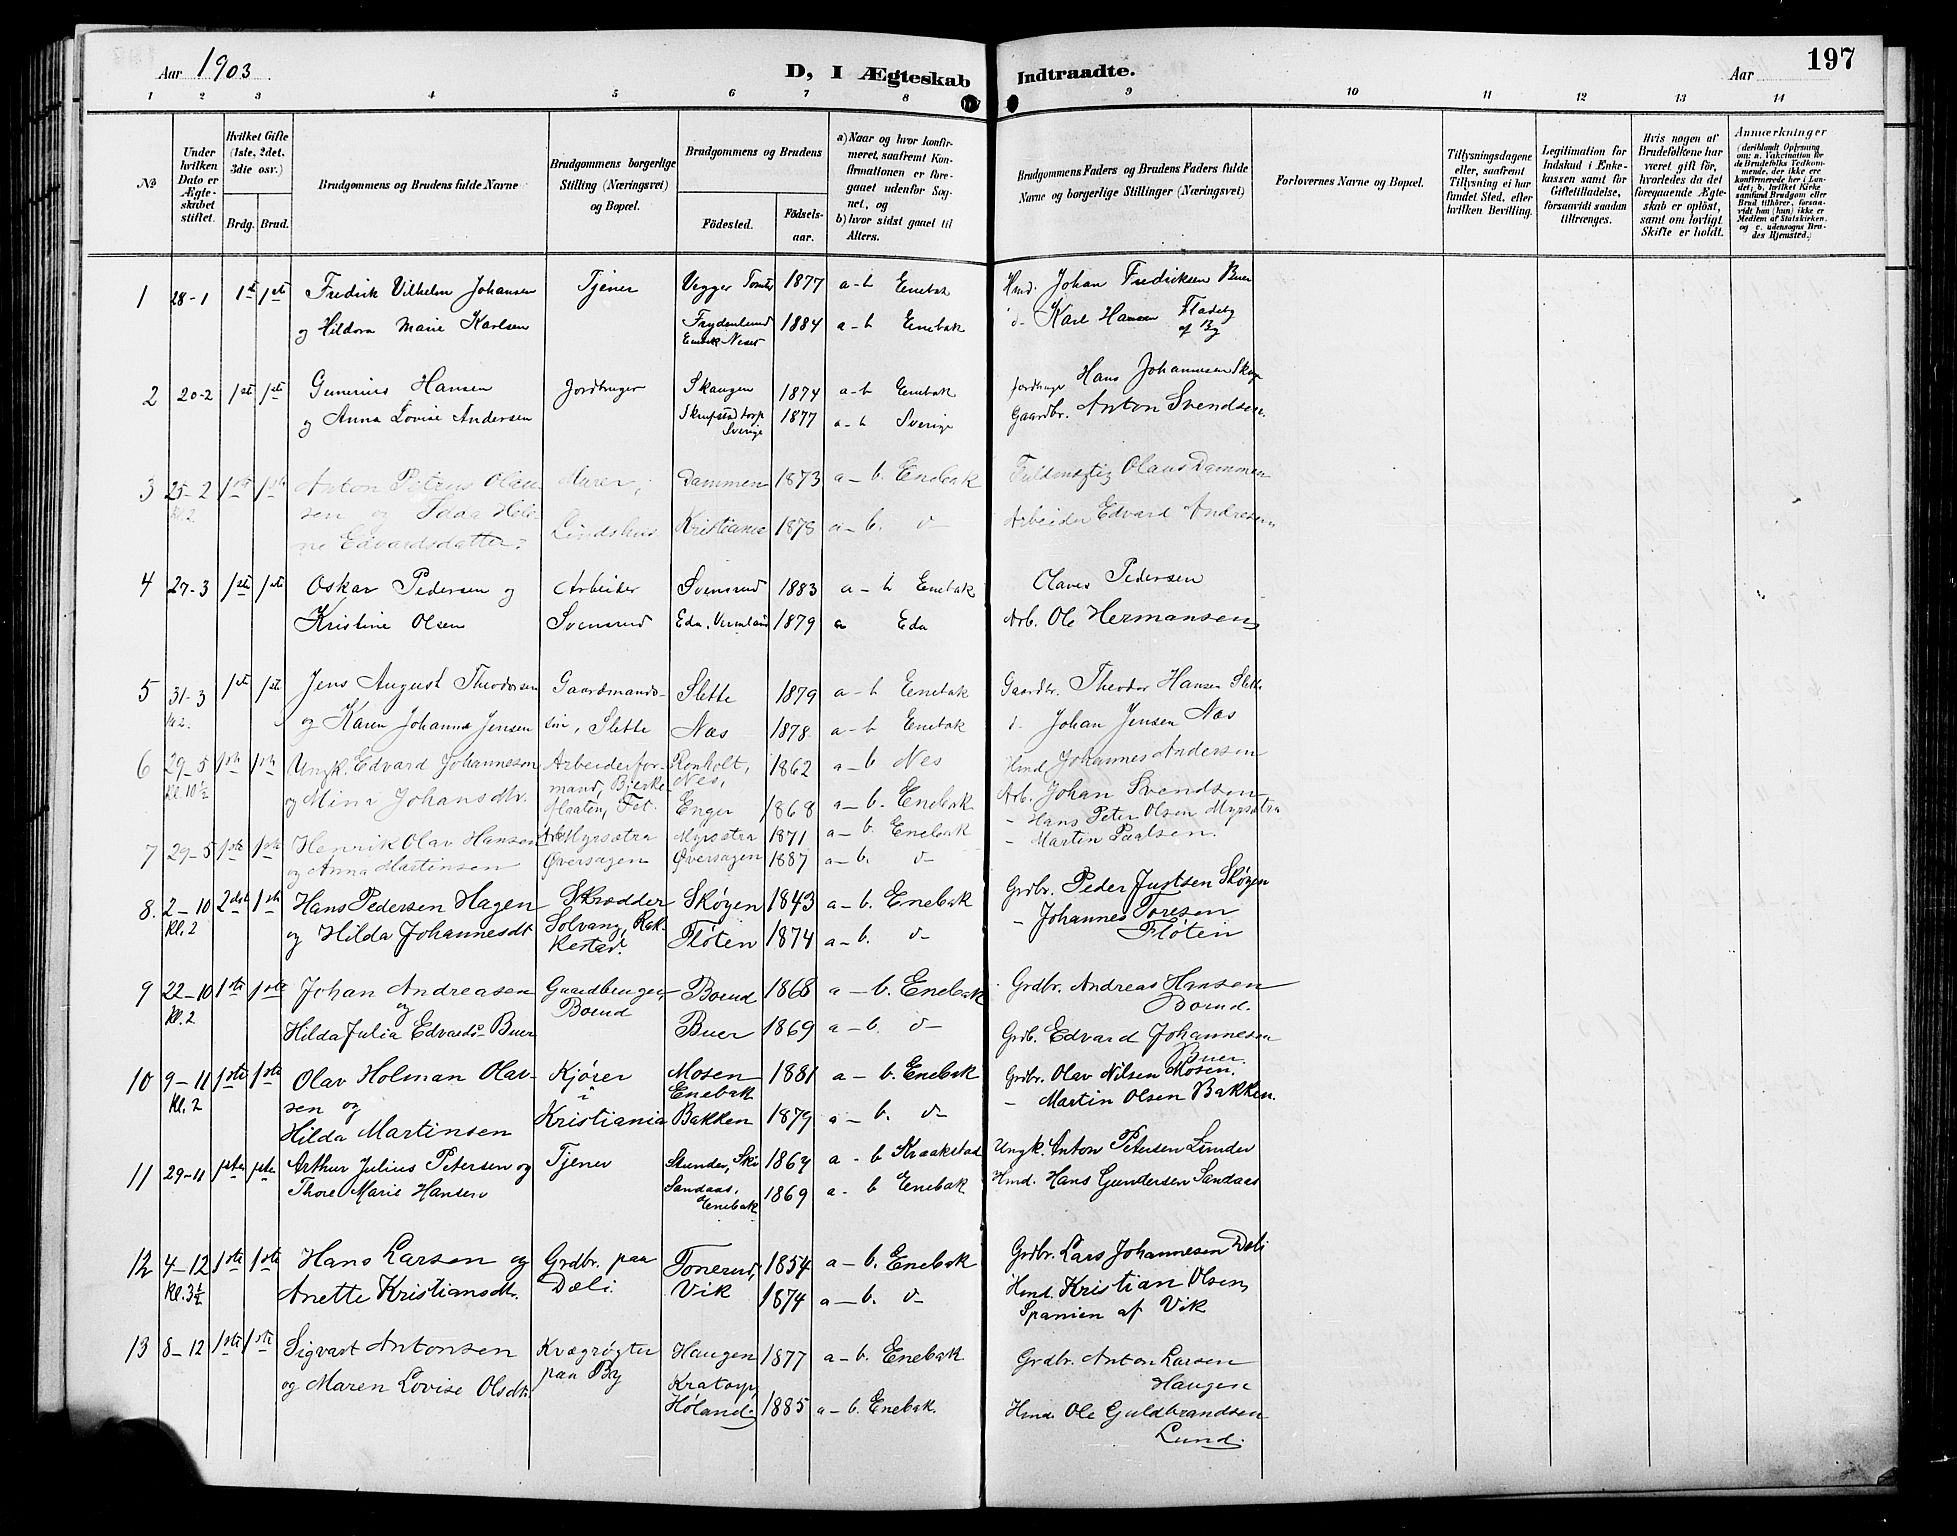 Aar 1903.
D, I Ægteskab Indtraadte.
Aar
197
1 2 3 4 5 6 7 8 9 10 11 12 13 14
No
Under hvilken Dato er Ægteskabet stiftet.
Hvilket Gifte (1ste, 2det, 3dte osv.)
Brdg. Brud.
Brudgommens og Brudens fulde Navne
Brudgommens borgerlige Stilling (Næringsvei) og Bopæl.
Brudgommens og Brudens
Fødested.
Fødselsaar.
a) Naar og hvor konfirmeret, saafremt Konfirmationen er foregaaet udenfor Sognet, og
b) hvor sidst gaaet til Alters.
Brudgommens Faders og Brudens Faders fulde Navne og borgerlige Stillinger (Næringsvei)
Forlovernes Navne og Bopæl.
Tillysningsdagene eller, saafremt Tillysning ei har fundet Sted, efter hvilken Bevilling.
Legitimation for Indskud i Enkekassen samt for Giftetilladelse, forsaavidt saadan tiltrænges.
Hvis nogen af Brudefolkene har været gift før, hvorledes da det foregaaende Ægteskab er opløst, samt om lovligt Skifte er holdt.
Anmærkninger
(deriblandt Oplysning om: a. Vakcination for de Brudefolks Vedkommende, der ikke ere konfirmerede her i Landet; b. hvilket Kirkesamfund Brudgom eller Brud tilhører, forsaavidt han (hun) ikke er Medlem af Statskirken, og c. udensogns Brudes Hjemsted.)
1 28-1 1ste 1ste Fredrik Vilhelm Johansen Tjener Vegger Tomter 1877 a-b Enebak Hmd. Johan Fredriksen Buer
og Hildora Marie Karlsen Frydenlund 1884 a-b Enebak d- Karl Hansen Fladeby af By
2 20-2 1ste 1ste Gunerius Hansen Jordbruger Skaugen 1874 a-b Enebak Jordbruger Hans Johannesen
og Anna Lovise Andersen Sverige 1877 a-b Sverige Gaardbr. Anton Svendsen
3 25-2 1ste 1ste Anton Petrus Olaussen og Murer, Dammen 1873 a-b. Enebak Fuldmægtig Olaus Dammen
Kl. 2 Edvardsdatter. Lindshus Kristiania 1878 a-b. d- Arbeider Edvard Andresen
4 27-3 1ste 1ste Oskar Pedersen og Arbeider Svensrud 1883 a-b Enebak Claves Pedersen
Kristine Olsen Svensrud Eda, Vermland 1879 a Eda Arb. Ole Hermansen
5 31-3 1ste 1ste Jens August Theodorsen Gaardmands- Slette 1879 a-b Enebak Gaardbr. Theodor Hansen Slette
Kl 2. og Karen Johanna Jensen søn, Slette Næs 1878 a-b Enebak d- Johan Jensen Næs
6 29-5 1ste 1ste Ungk. Edvard Johannesen Arbeiderfor- Ronholt, 1862 a-b Nes Hmd Johannes Andersen
Kl. 10½ og Mina Johansdtr. mand, Bjerke- Nes, Enger 1868 a-b. Enebak Arb. Johan Svendsen
7 29-5 1ste 1ste Henrik Olav Hansen Arb. Myrsætra Myrsætra 1871 a-b. Enebak - Hans Peter Olsen Myrsætra
og Anna Martinsen Øversagen Øversagen 1887 a-b. d- - Martin Paalsen.
8. 2-10 2det 1ste Hans Pedersen Hagen Skrædder Skøyen 1843 a-b. Enebak Grdbr. Peder Justsen Skøyen
Kl. 2 og Hilda Johannesdt. Solvang, Rakkestad. Fløten 1874 a-b. d- - Johannes Toresen Fløten
9 22-10 1ste 1ste Johan Andreasen Gaardbruger, Boeud 1868 a-b. Enebak Grdbr. Andreas Hansen Boeud.
Kl. 2 og Hilda Julia Edvards. Buer Boeud Buer 1869 a-b. d- Grdb. Edvard Johannesen Buer.
10 9-11 1ste 1ste Olav Holman Olav- Kjører Mosen Enebak 1881 a-b. Enebak Grdbr. Olav Nilsen Mosen.
Kl. 2 sen og Hilda Martinsen i Kristiania Bakken 1879 a-b. d- - Martin Olsen Bakken.
11 29-11 1ste 1ste Arthur Julius Petersen og Tjener Ski 1864 a-b Kraakstad Ungk. Anton Petersen Lunder
Thore Marie Hansen Sandaas, Enebak 1869 a-b Enebak Hmd. Hans Gundersen Sandaas
12 4-12 1ste 1ste Hans Larsen og Grdbr. paa Tonerud, 1854 a-b. Enebak Grdbr. Lars Johannesen Dæli
Kl. 3½ Anette Kristiansdt. Dæli. Vik 1874 a-b. d- Hmd. Kristian Olsen, Spanien af Vik
13 8-12 1ste 1ste Sigvart Antonsen Kvægrøgter Haugen 1877 a-b. Enebak Grdbr. Anton Larsen Haugen
og Maren Lovise Olsdt. paa By Kratorp, Høland. 1885 a-b. Enebak. Hmd. Ole Guldbrandsen Lund.